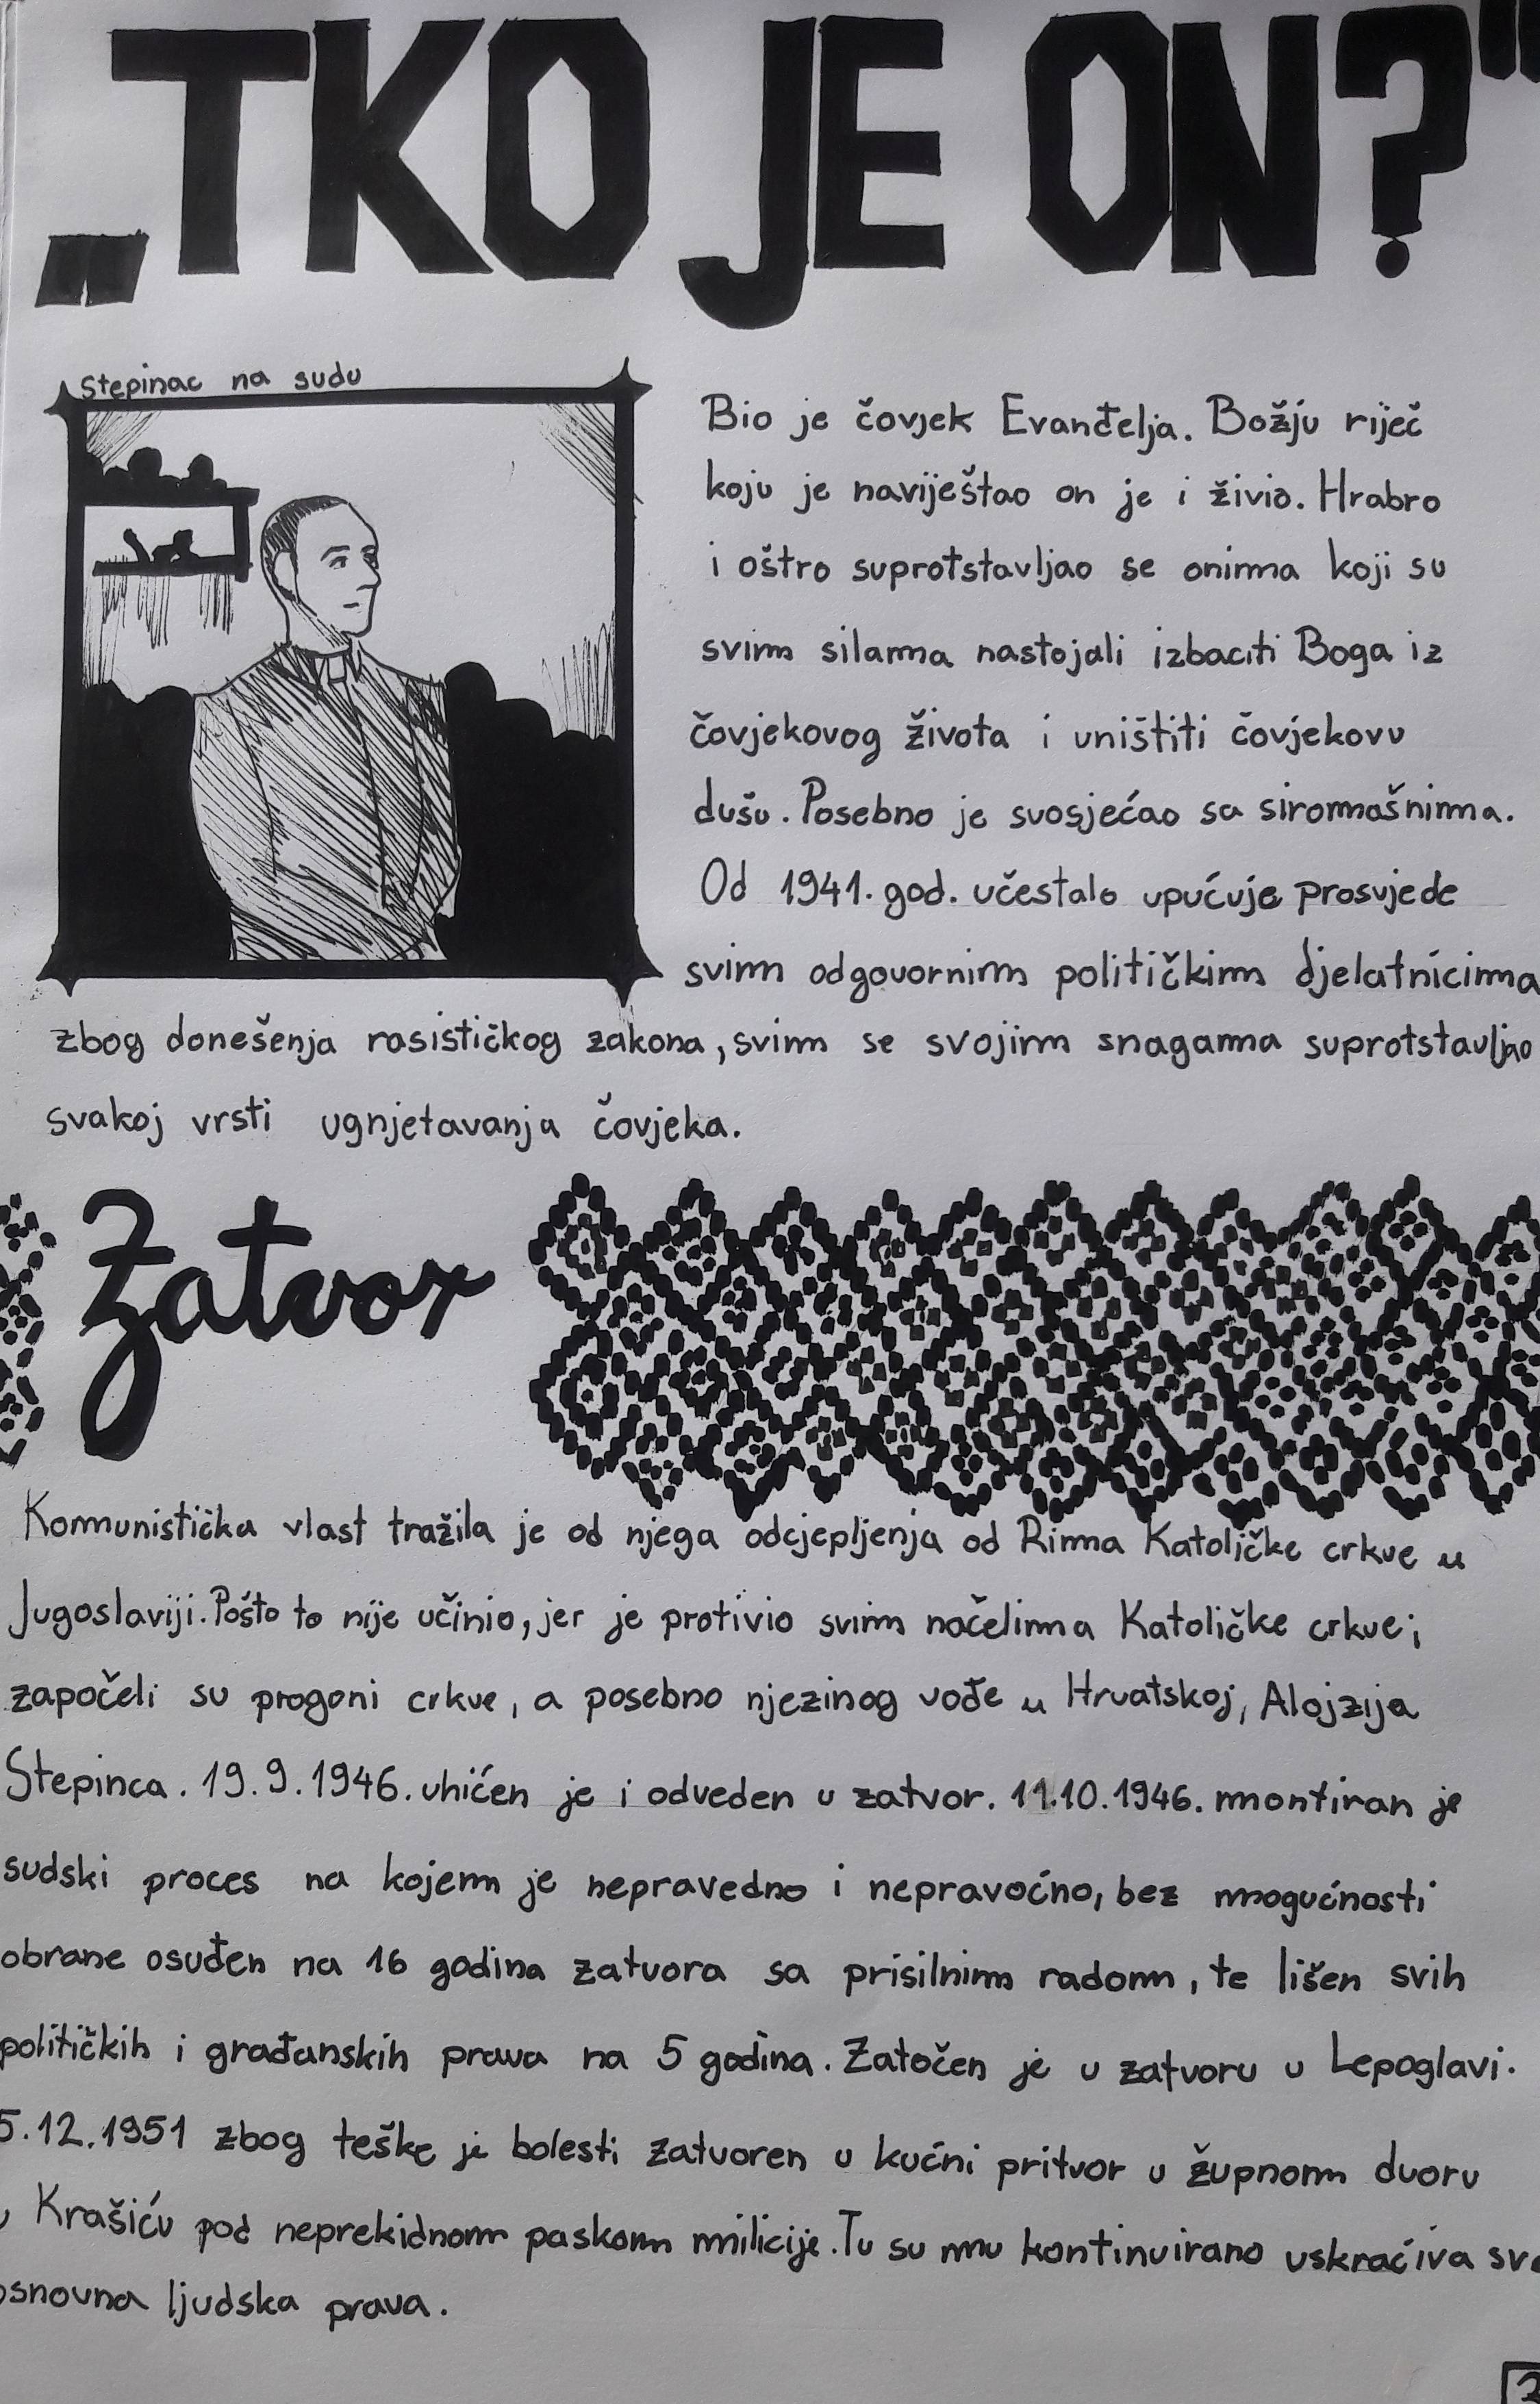 „TKO JE ON?"
Stepinac na sudu
Bio je čovjek Evanđelja. Božju riječ
koju je naviještao on je i živio. Hrabro
i oštro suprotstavljao se onima koji su
svim silama nastojali izbaciti Boga iz
čovjekovog života i uništiti čovjekovu
dušu. Posebno je suosjećao sa siromašnima.
Od 1941. god. učestalo upućuje prosvjede
svim odgovornim političkim djelatnicima
zbog donešenja rasističkog zakona, svim se svojim snagama suprotstavljao
svakoj vrsti ugnjetavanja čovjeka.
Zatvor
Komunistička vlast tražila je od njega odcjepljenja od Rima Katoličke crkve u
Jugoslaviji. Pošto to nije učinio, jer je protivio svim načelima Katoličke crkve;
započeli su progoni crkve, a posebno njezinog vođe u Hrvatskoj, Alojzija
Stepinca. 19.9.1946. uhićen je i odveden u zatvor. 11.10.1946. montiran je
sudski proces na kojem je nepravedno i nepravoćno, bez mogućnosti
obrane osuđen na 16 godina zatvora sa prisilnim radom, te lišen svih
političkih i građanskih prava na 5 godina. Zatočen je u zatvoru u Lepoglavi.
5.12.1951 zbog teške je bolesti zatvoren u kućni pritvor u župnom dvoru
u Krašiću pod neprekidnom paskom milicije. Tu su mu kontinuirano uskraćiva sva
osnovna ljudska prava.